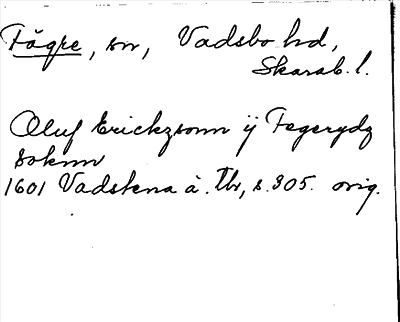 Fägre, sn, Vadsbo hd,
Skarab. l.
Oluf Erickzsonn ij Fegerydz
soknn
1601 Vadstena ä. Tb, s. 305. orig.